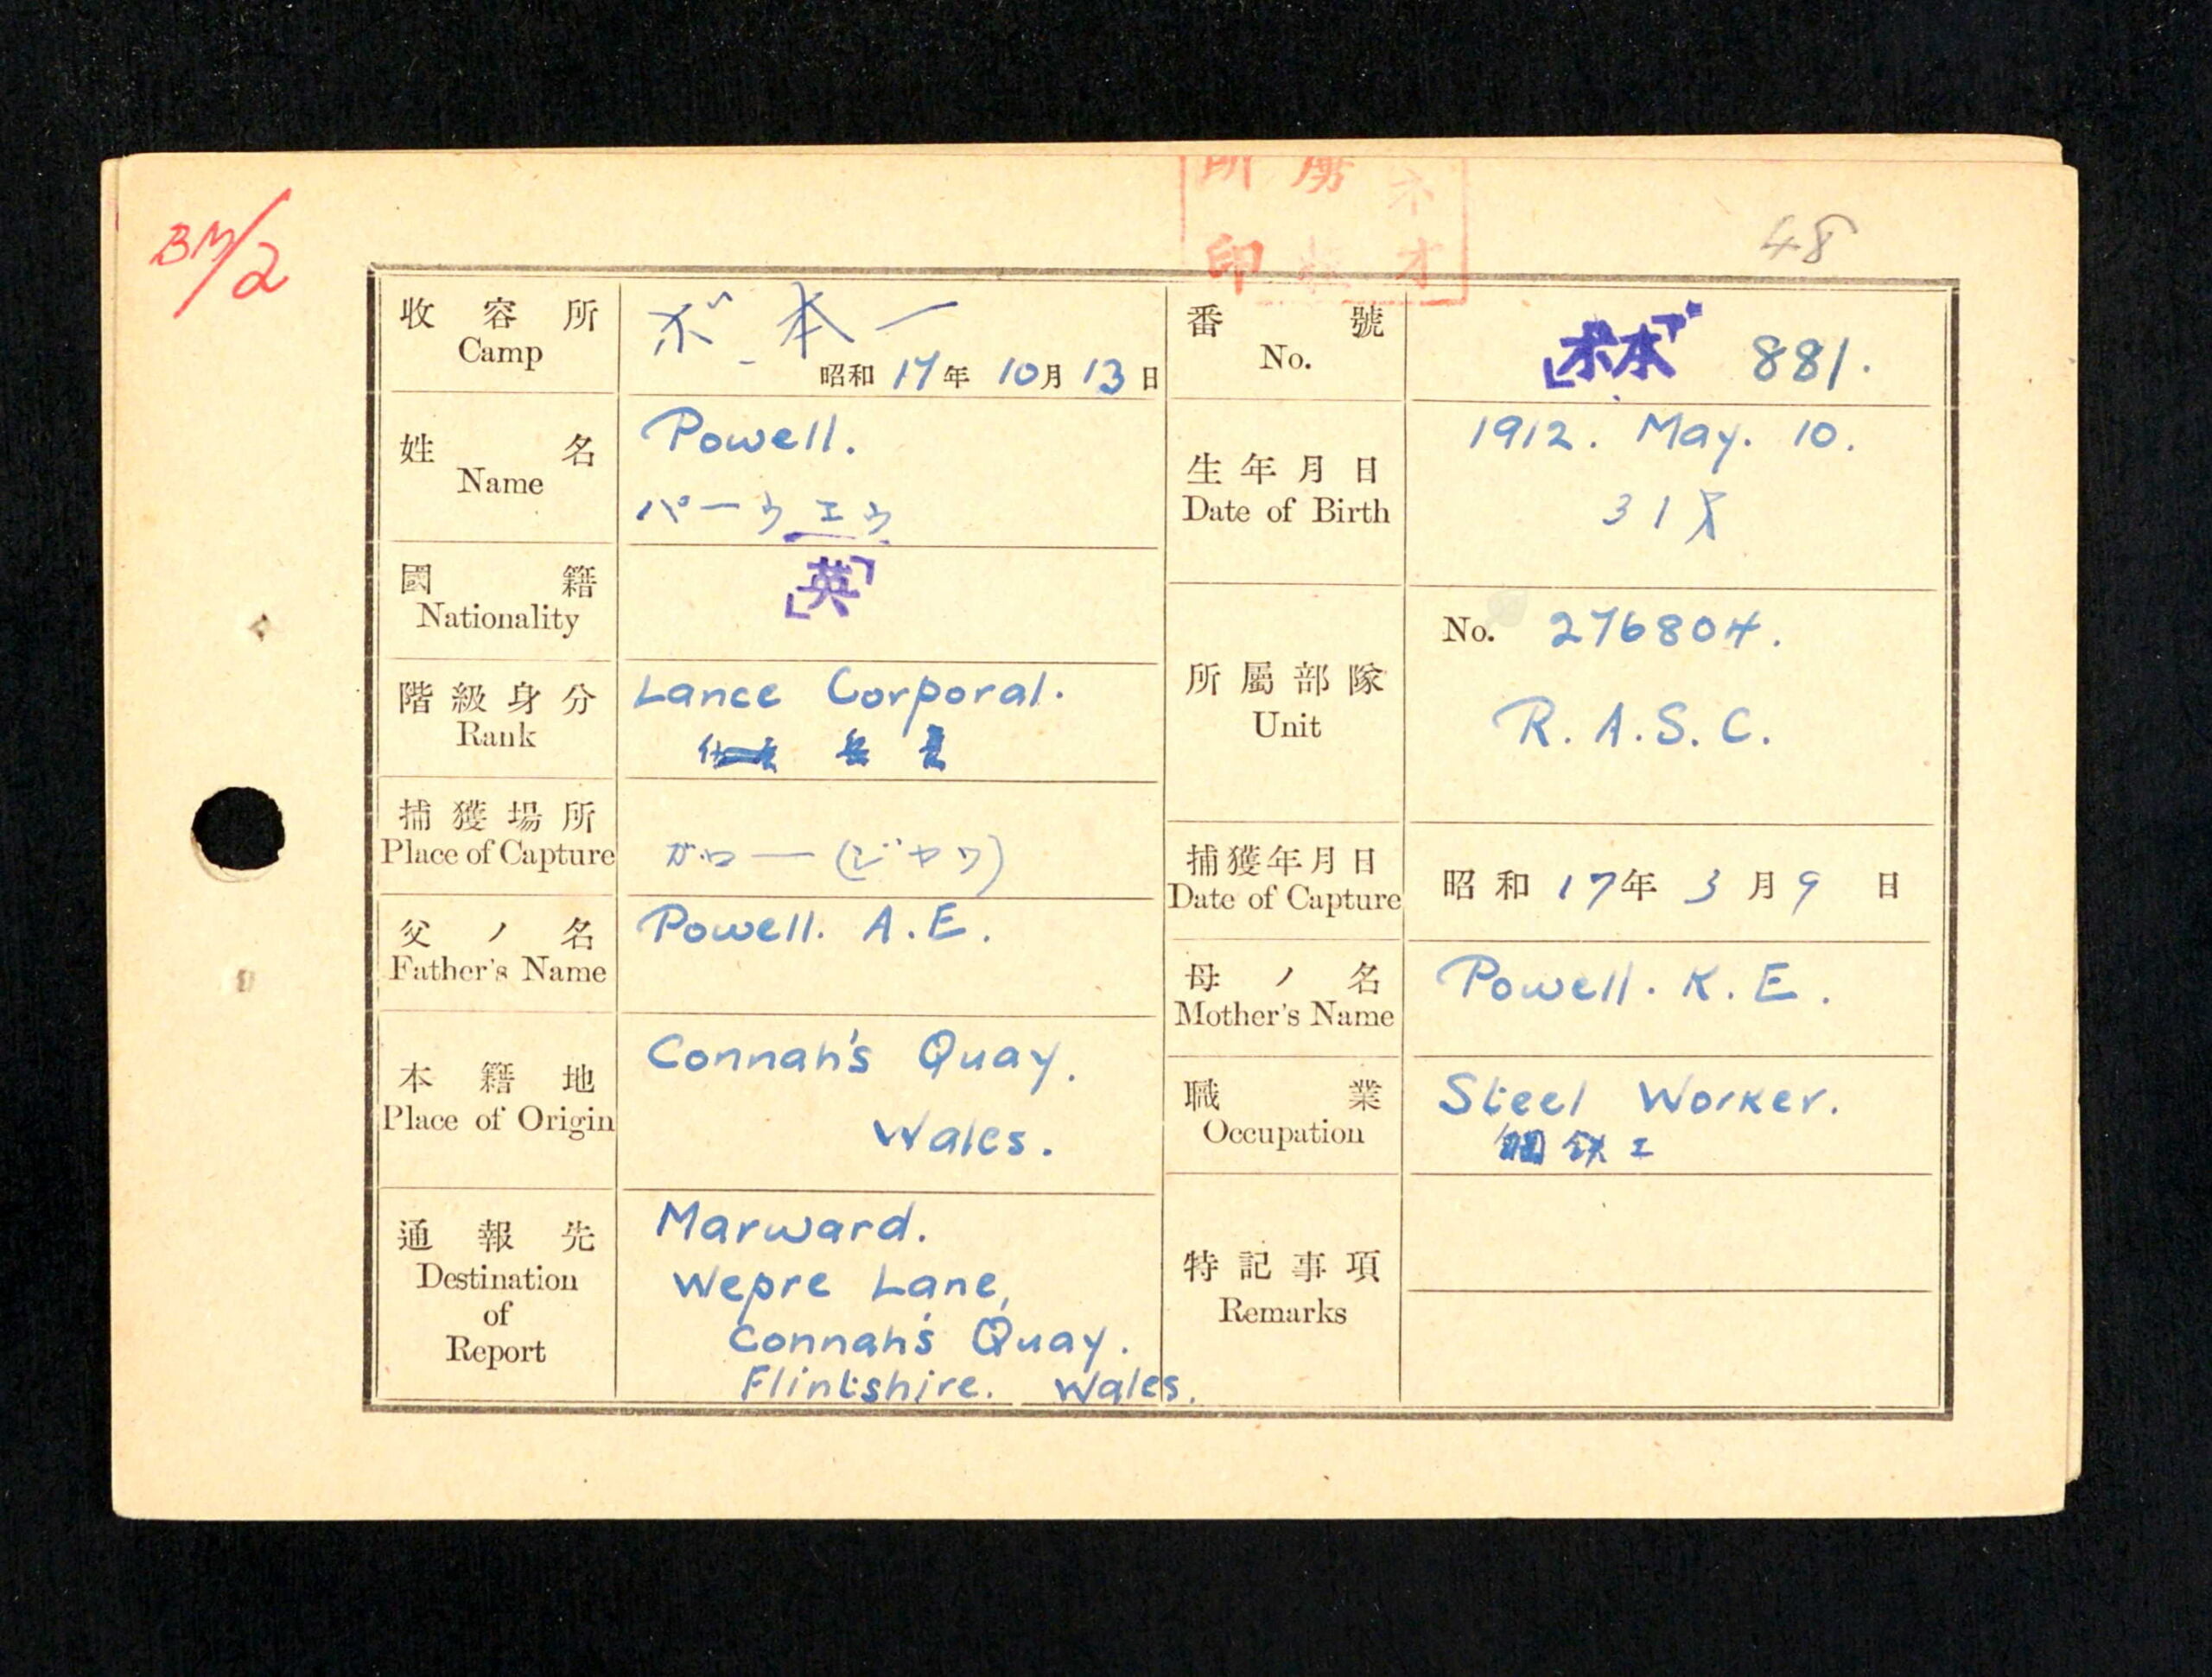 BM/2
48
收容所
Camp
ボ 本 一
昭和 17年 10月 13日
番號
No.
「ボ本」 881.
姓名
Name
Powell.
パーウエウ
生年月日
Date of Birth
1912. May. 10.
31才
國籍
Nationality
「英」
階級身分
Rank
Lance Corporal.
兵長
所屬部隊
Unit
No. 276804.
R.A.S.C.
捕獲場所
Place of Capture
ガロー (ジヤワ)
捕獲年月日
Date of Capture
昭和 17年 3月 9日
父ノ名
Father's Name
Powell. A.E.
母ノ名
Mother's Name
Powell. K.E.
本籍地
Place of Origin
Connah's Quay.
Wales.
職業
Occupation
Steel Worker.
鋼鉄工
通報先
Destination
of
Report
Marward.
Wepre Lane,
Connah's Quay.
Flintshire. Wales.
特記事項
Remarks